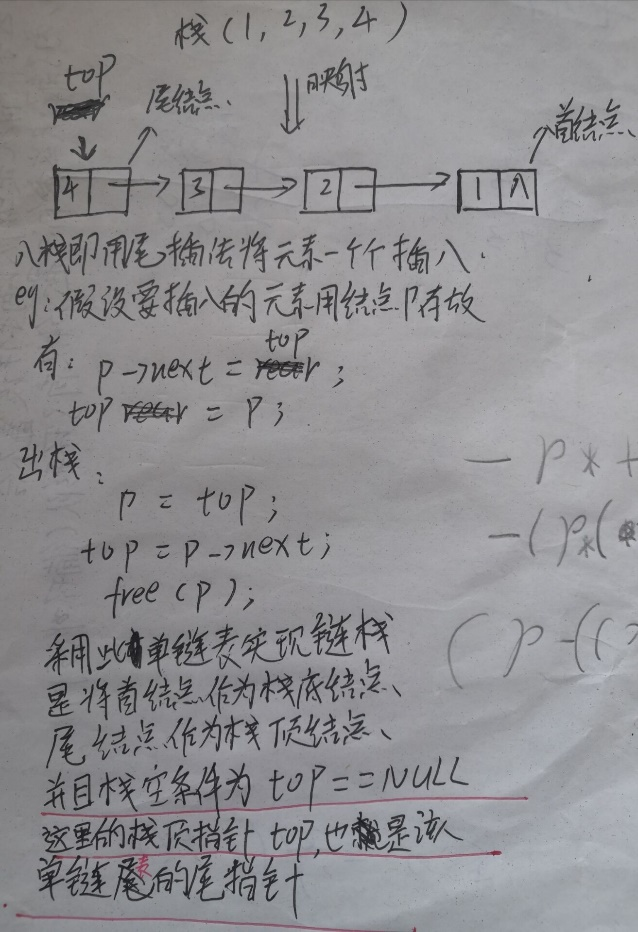 栈(1,2,3,4)
top
尾结点
映射
首结点
4 3 2 1 ∧
入栈即用尾插法将元素一个个插入.
eg:假设要插入的元素用结点P存放
有: p->next = top;
top = p;
出栈:
p = top;
top = p->next;
free(p);
采用此单链表实现链栈
是将首结点作为栈底结点、
尾结点作为栈顶结点、
并且栈空条件为 top==NULL
这里的栈顶指针 top,也是该
单链表的尾指针